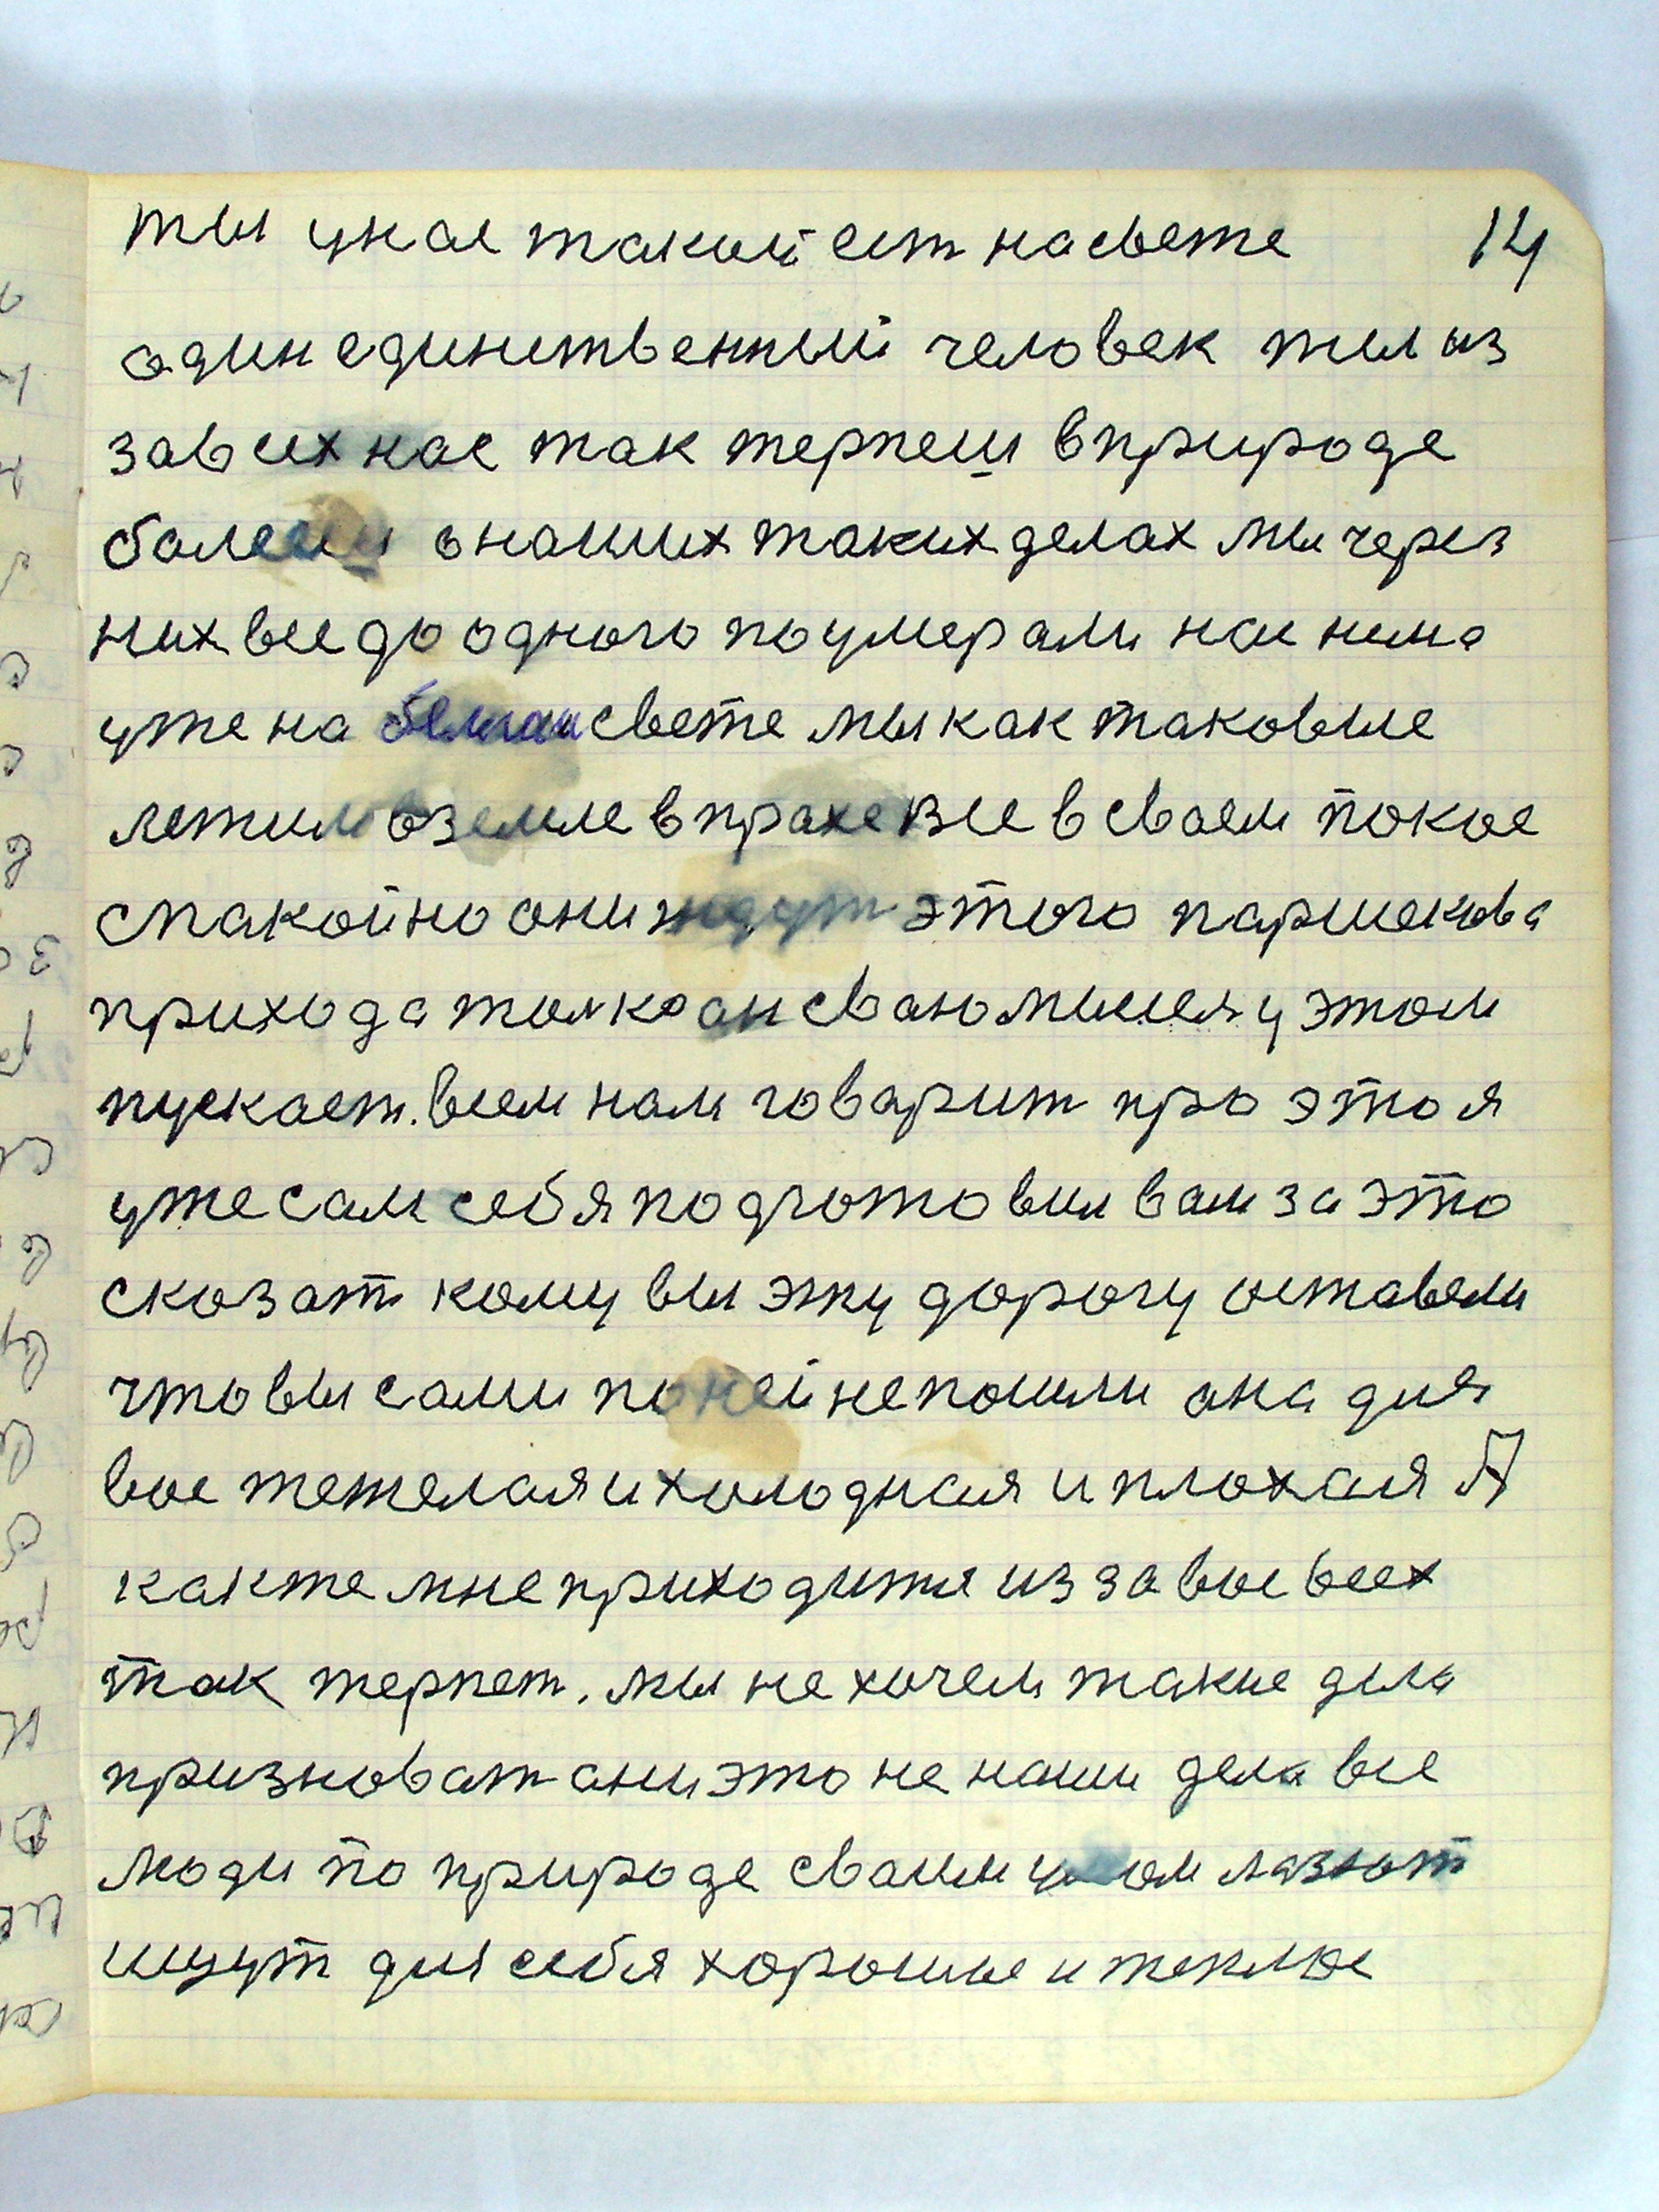 ты унас такой ест насвете 14
один единственный человек тыиз
завсех нас так терпеш вприроде
болееш онаших таких делах мы через
них все до одного поумерали нас нима
уже на белом свете мы как таковые
лежим вземле впрахе все в своем покое
спакойно они ждут этого паршекова
прихода толко он сваю мысля у этом
пускает. всем нам говарит про это я
уже сам себя подготовил вам за это
сказат кому вы эту дорогу оставели
что вы сами поней непошли она для
вас тежелая и холодная и плохая А
какже мне приходится из за вас всех
так терпет. мы не хочем такие дела
признават они это не наши дела все
люди по природе сваим умом лазют
ищут для себя хорошые и теплое